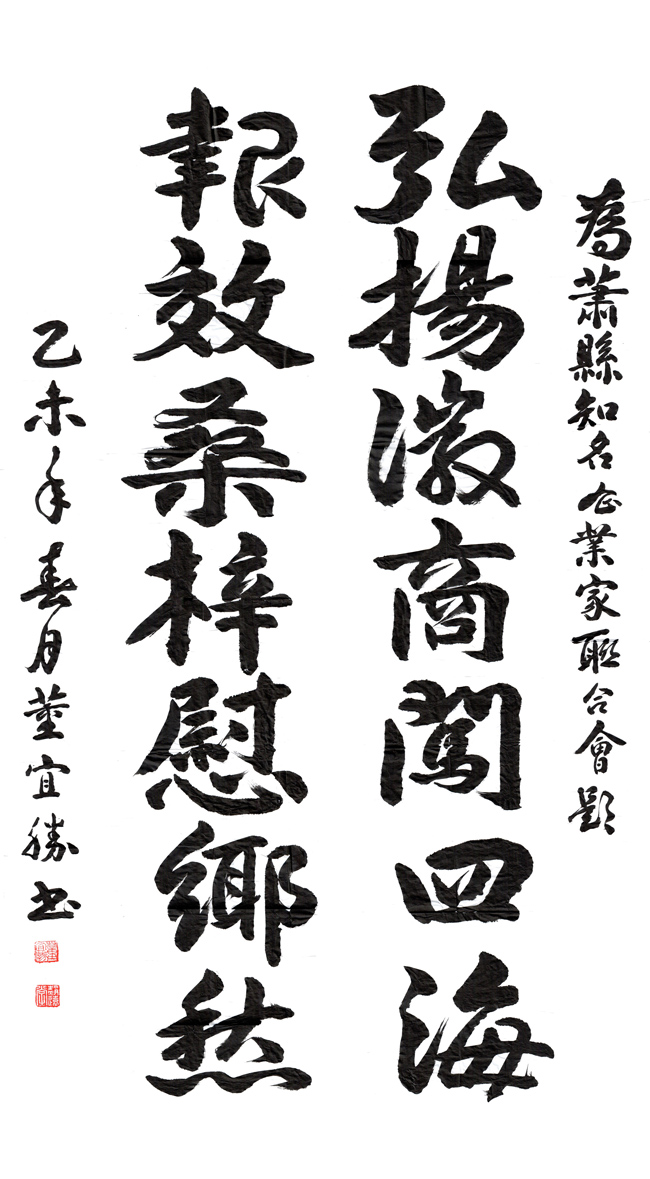 為蕭縣知名企業家聯合會題
弘揚徽商闖四海
報效桑梓慰鄉愁
乙未年春月董宜勝書